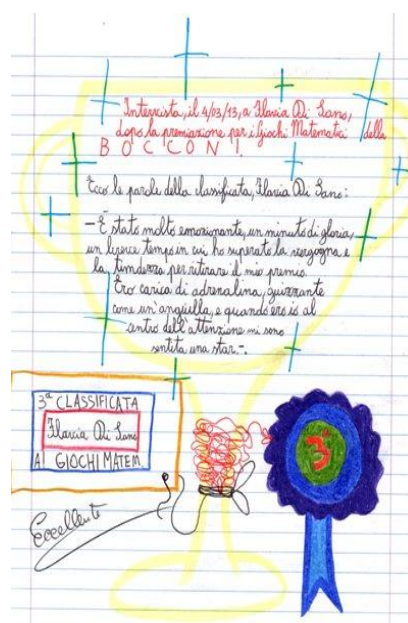 Intervista, il 4/03/13, a Ilaria Di Sano,
dopo la premiazione per i Giochi Matematici della
BOCCONI.
Ecco le parole della classificata, Ilaria Di Sano:
-È stato molto emozionante, un minuto di gloria,
un breve tempo in cui ho superato la vergogna e
la timidezza per ritirare il mio premio.
Ero carica di adrenalina, guizzante
come un'anguilla, e quando ero io al
centro dell'attenzione mi sono
sentita una star-.
3ª CLASSIFICATA
Ilaria Di Sano
AI GIOCHI MATEM
3ª
Eccellente